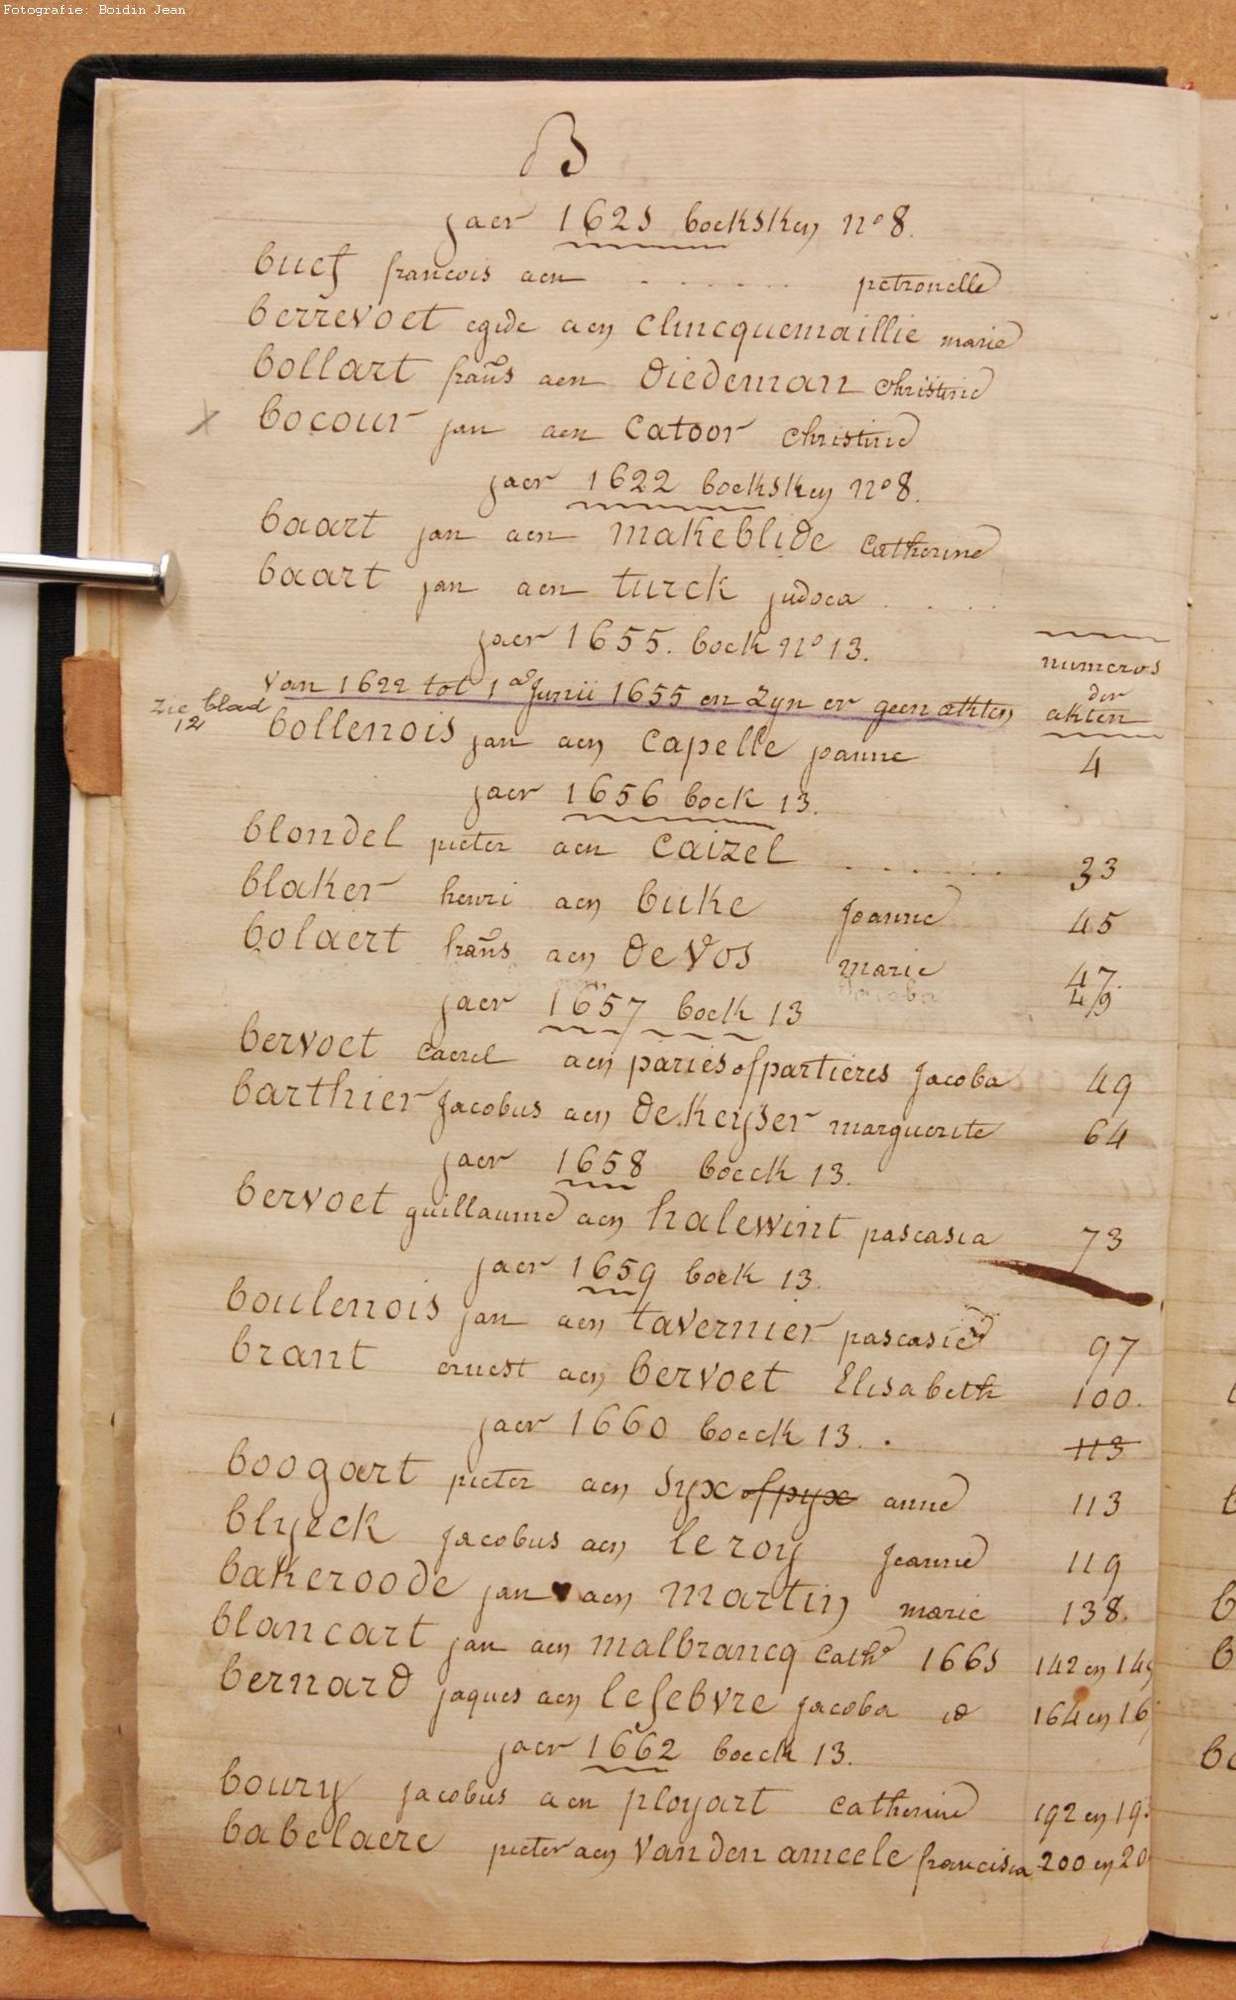 Fotografie: Boidin Jean
B
jaer 1621 boeksken nº 8.
buef francois aen . . . . . . petronelle
berrevoet egide aen Clincquemaillie marie
bollart frañs aen diedeman Christine
x bocour jan aen Catoor Christine
jaer 1622 boeksken nº 8.
baart jan aen makeblide Catherine
baart jan aen turck judoca . . . .
jaer 1655. boek nº 13.
numeros
der
akten
Van 1622 tot 1 Junii 1655 en Zyn er geen akten
zie blad
12
bollenois jan aen Capelle joanne 4
jaer 1656 boek 13.
blondel pieter aen Caizel . . . . . . . 33
blaker henri aen buke Joanne 45
bolaert frañs aen de Vos marie 47
jaer 1657 boek 13 49
bervoet Caerel aen paries of partieres Jacoba 49
barthier Jacobus aen de Keyser marguerite 64
jaer 1658 boeck 13.
bervoet guillaume aen halewint pascasia 73
jaer 1659 boek 13.
boulenois jan aen tavernier pascasie 97
brant ernest aen bervoet Elisabeth 100.
jaer 1660 boeck 13. . 113
boogart pieter aen Syx of pyx anne 113
blyeck Jacobus aen le roy Jeanne 119
bakeroode jan aen martin marie 138.
blancart jan aen malbrancq Cathe 1661 142 en 14
bernard jaques aen lefebvre jacoba id 164 en 16
jaer 1662 boeck 13.
boury jacobus aen ployart Catherine 192 en 19
babelaere pieter aen Van den ameele francisca 200 en 20